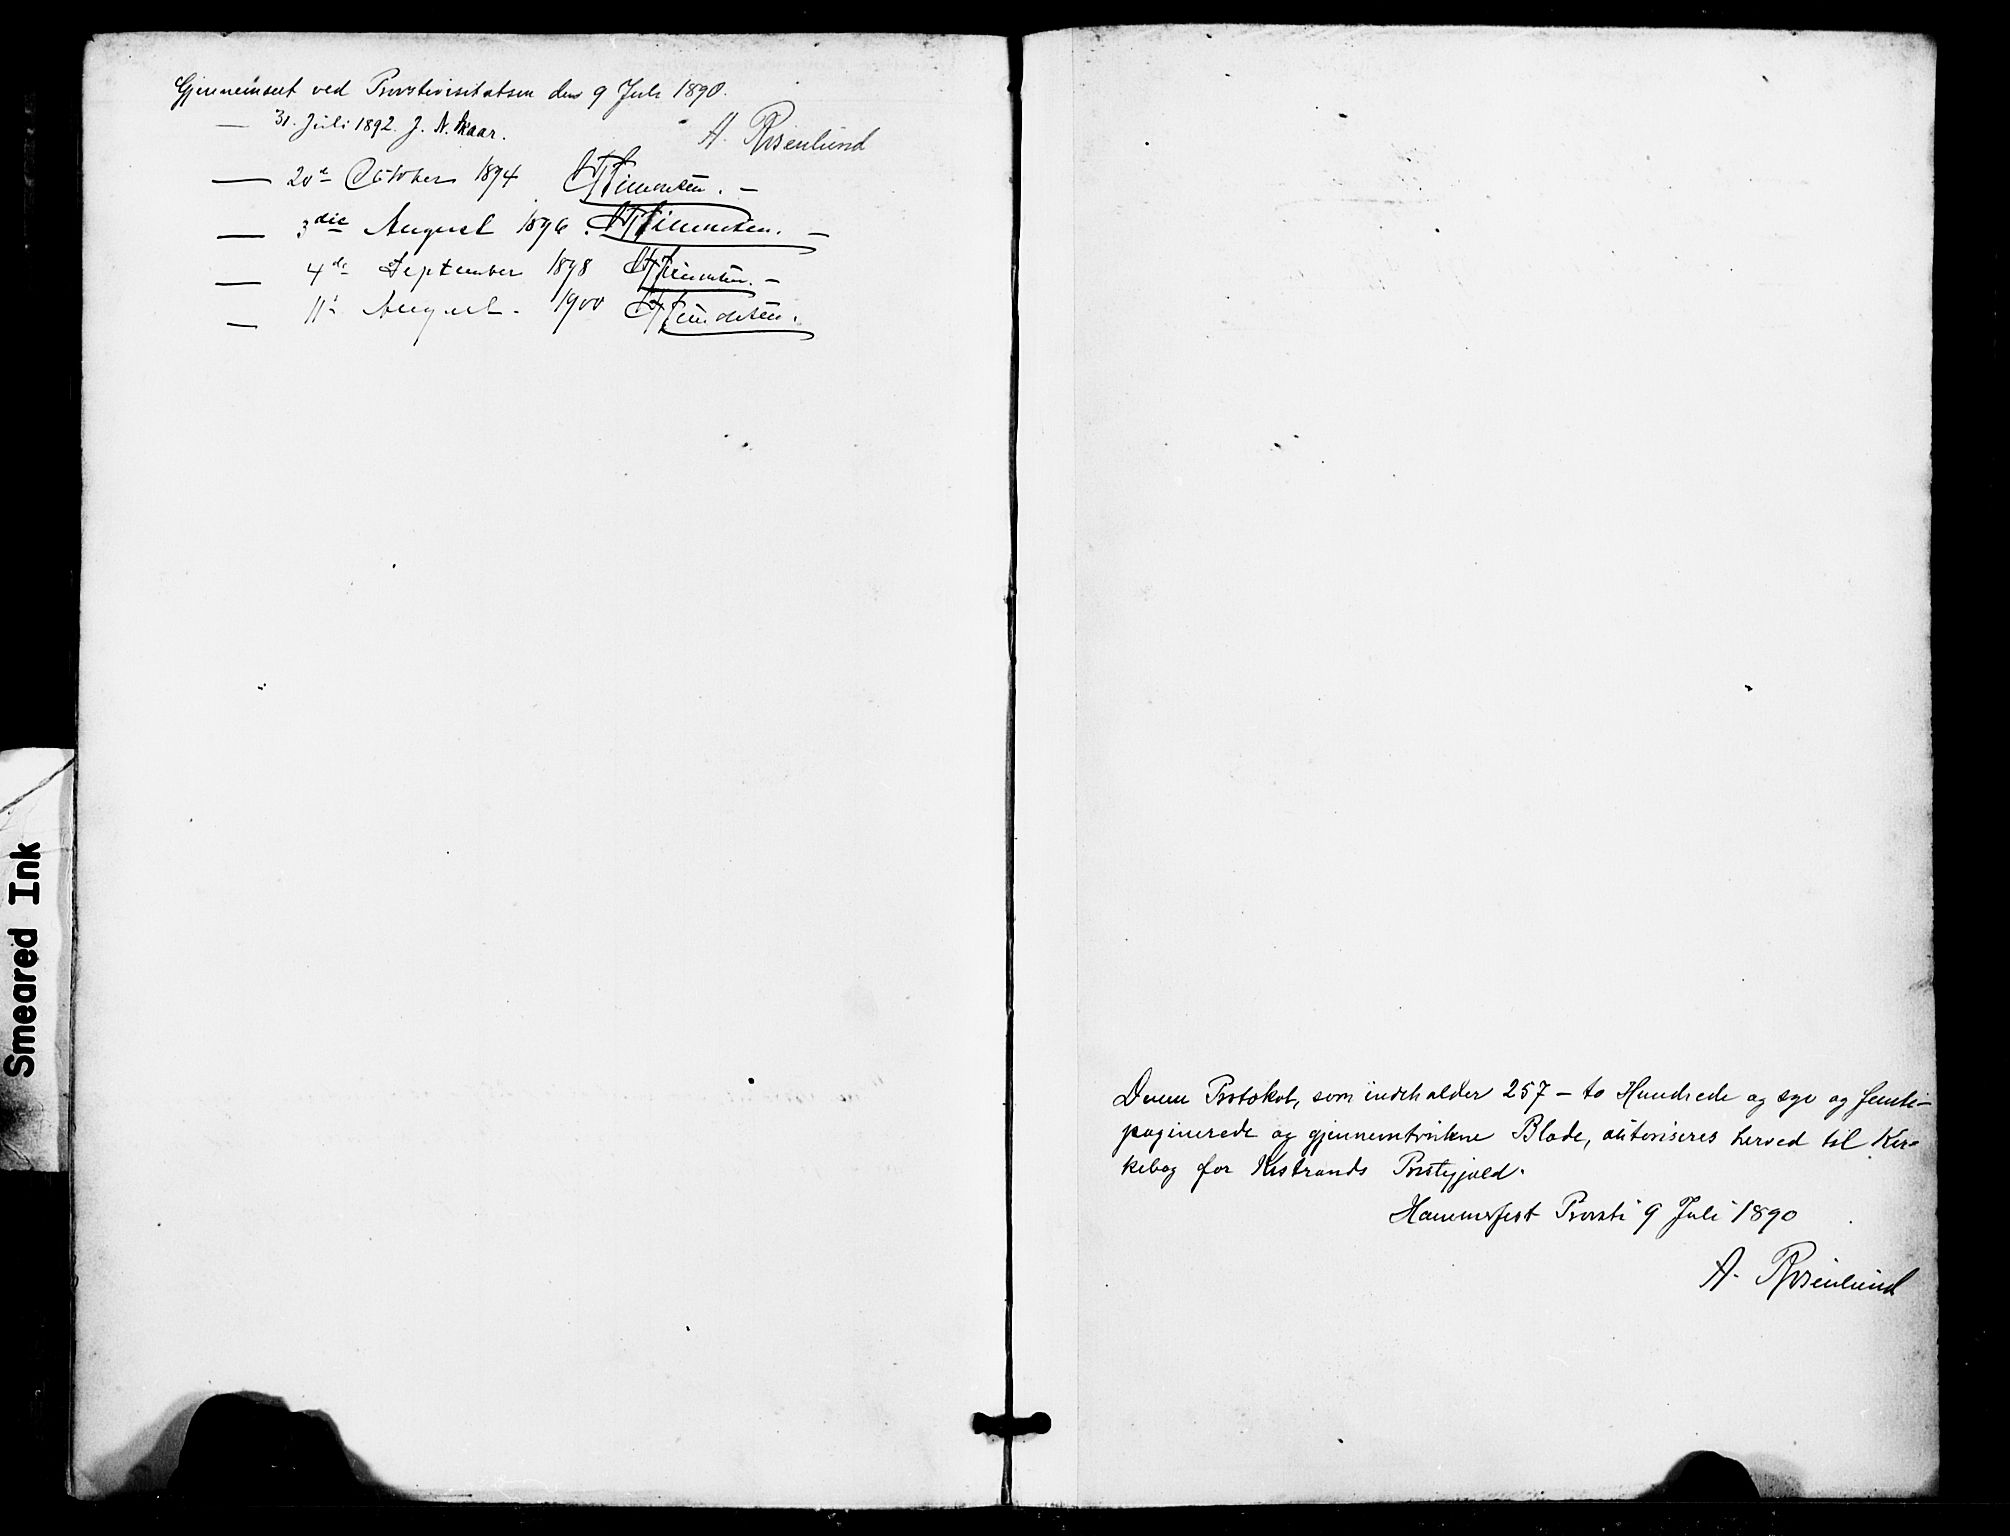 Gjennemseet ved Provstivisitatsen den 9 Juli 1890.
A. Rosenlund
— 31. Juli 1892. J. N. Skaar.
— 20de October 1894 Simonsen. —
— 3die August 1896. Simonsen. —
— 4de September 1898 Simonsen. —
— 11te August. 1900 Simonsen.
Smeared Ink
Denne Protokol, som indeholder 257 – to Hundrede og syv og femti –
paginerede og gjennemtrukne Blade, autoriseres herved til Kir-
kebog for Kistrands Prestegjæld.
Hammerfest Provsti 9 Juli 1890
A. Rosenlund